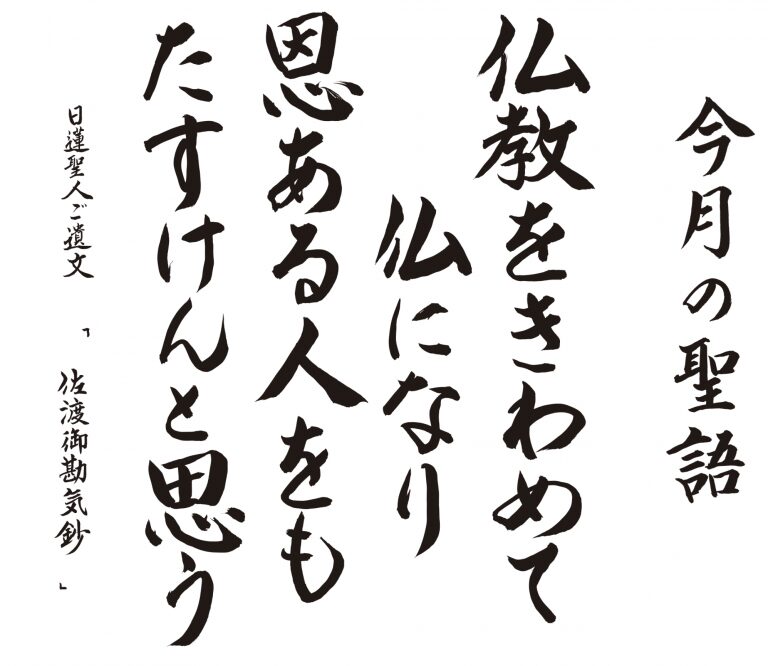 今月の聖語
仏教をきわめて
仏になり
恩ある人をも
たすけんと思う
日蓮聖人ご遺文
「佐渡御勘気鈔」